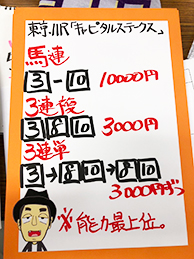 東京11R「キャピタルステークス」
馬連
3-10 10000円
3連複
3 8 10 3000円
3連単
3→8 10→8 10
3000円ずつ
※能力最上位。